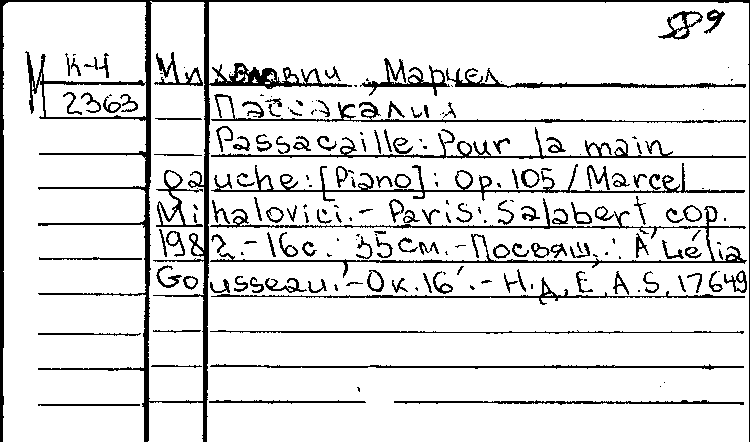 589
М К-4 Михалович, Марцел
2363 Пассакалия
Passacaille: Pour la main
gauche: [Piano]: Op. 105 / Marcel
Mihalovici. - Paris: Salabert, cop.
1982. - 16 с.; 35 см. - Посвящ.: À Hélia
Gousseau. - Ок. 16'. - Н.д. E.A.S. 17649